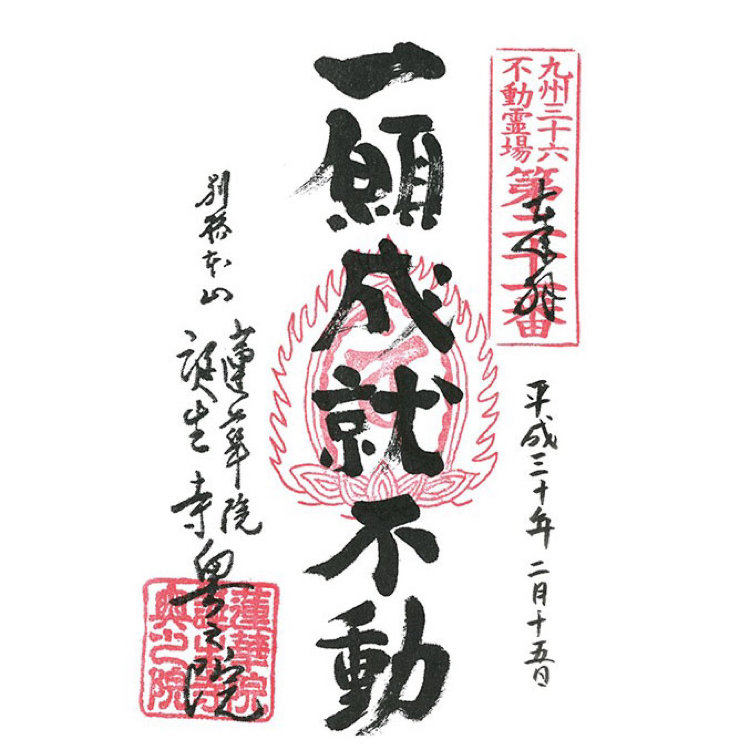 九州三十六
不動霊場
第二十二番
奉拝
平成三十年 二月十五日
一願成就不動
別格本山
蓮華院
誕生寺 奥之院
蓮華院
誕生寺
奥之院